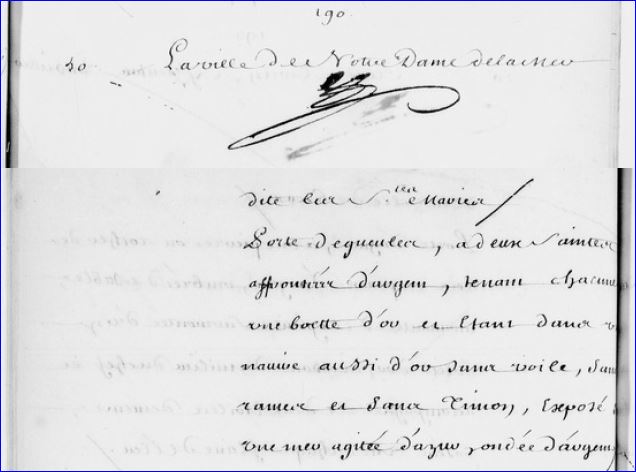 190.
50 La ville de Notre Dame de la Mer
dite les Stes Maries
Porte de gueules, à deux saintes
apponnées d'argent, tenant chacune
une boette d'or et étant dans
navire aussi d'or sans voile, sans
rames et sans timon, Exposé
une mer agitée d'azur, ondée d'argent